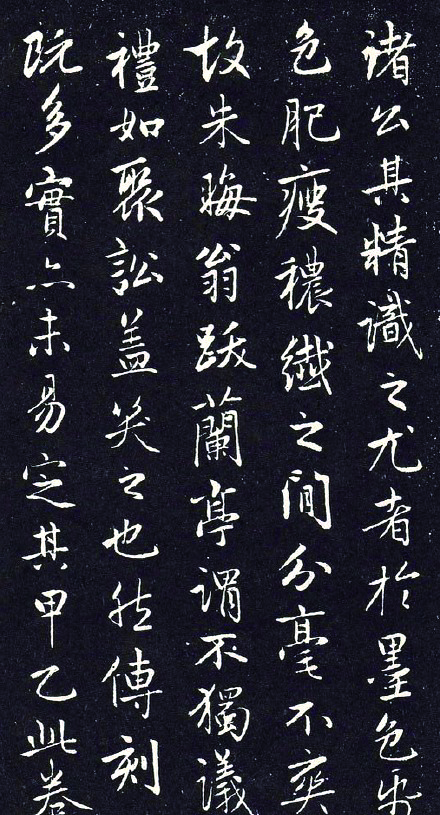 諸公其精識之尤者於墨色帋
色肥瘦穠纖之間分毫不爽
故朱晦翁跋蘭亭謂不獨議
禮如聚訟盖笑之也然傳刻
既多實亦未易定其甲乙此卷